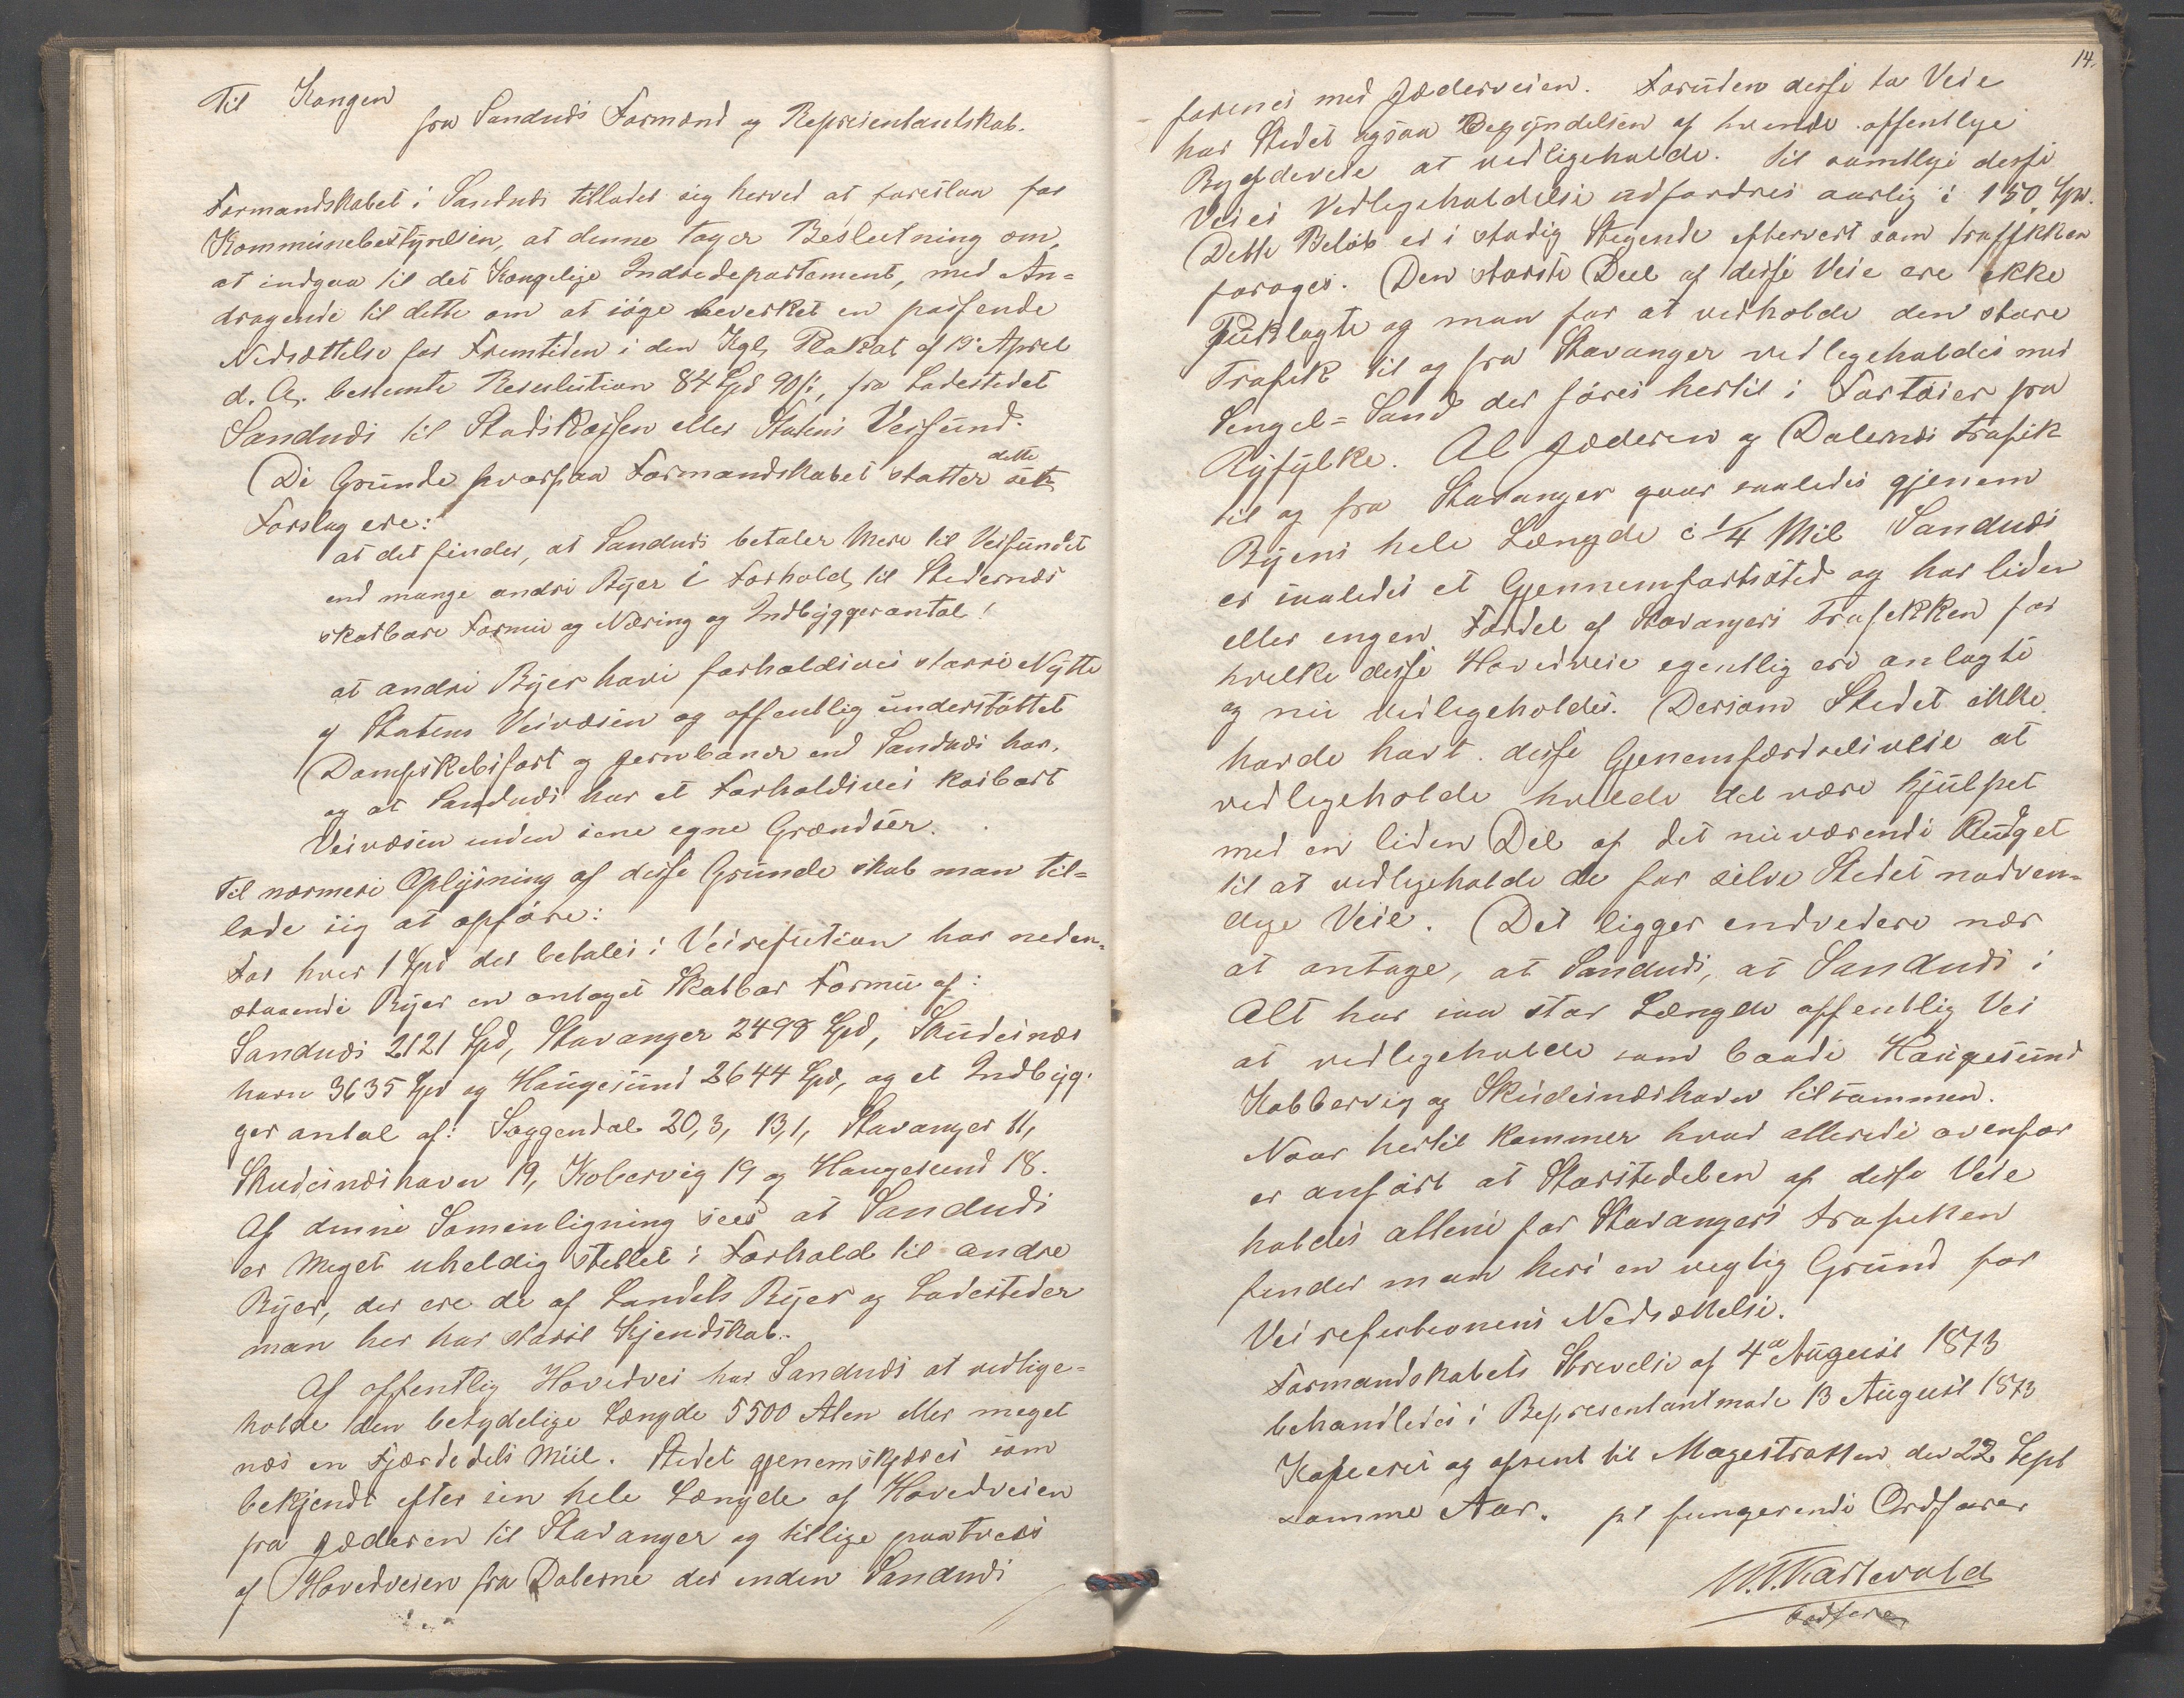 Til Kongen
fra Sandnæs Formænd og Repræsentantskab.
Formandskabet i Sandnæs tillader sig herved at foreslaa for
Kommunebestyrelsen, at denne tager Beslutning om,
at indgaa til det Kongelige Indredepartement, med An-
dragende til dette om at søge bevirket en passende
Nedsættelse for Fremtiden i den Kgl. Plakat af 15 April
d. A. bestemte Reseulution 84 Spd 90 s, fra Ladestedet
Sandnæs til Stadskassen eller Statens Veifund.
De Grunde hvorpaa Formandskabet støtter dette
Forslag ere:
at det finder, at Sandnæs betaler Mere til Veifundet
end mange andre Byer i Forhold til Stedernes
skatbare Formue og Næring og Indbyggerantal,
at andre Byer have forholdsvis større Nytte
af Statens Veivæsen og offentlig understøttet
Dampskibsfart og Jernbaner end Sandnæs har,
og at Sandnæs har et Forholdsvis kostbart
Veivæsen inden sine egne Grændser.
Til nærmere Oplysning af disse Grunde skal man til-
lade sig at opføre:
For hver 1 Spd der betales i Veirefution har neden-
staaende Byer en antaget Skatbar Formue af:
Sandnæs 2121 Spd, Stavanger 2498 Spd, Skudesnæs
havn 3635 Spd og Haugesund 2644 Spd, og et Indbyg-
ger antal af: Soggendal 20,3, 13,1, Stavanger 11,
Skudesnæshavn 19, Kobervig 19 og Haugesund 18.
Af denne Samenligning sees at Sandnæs
er Meget uheldig stillet i Forhold til andre
Byer, der ere de af Landets Byer og Ladesteder
man her har størst Kjendskab.
Af offentlig Hovedvei har Sandnæs at vedlige-
holde den betydelige Længde 5500 Alen eller meget
nær en Fjerdedels Miil. Stedet gjenemskjæres som
bekjendt efter sin hele Længde af Hovedveien
fra Jæderen til Stavanger og tillige paatvers
af Hovedveien fra Dalerne der inden Sandnæs
14.
forenes med Jæderveien. Foruden disse to Veie
har Stedet ogsaa Begyndelsen af tvende offentlige
Bygdeveie at vedligeholde. Til samtlige disse
Veies Vedligeholdelse udfordres aarlig i 150 Spd.
Dette Beløb er i stadig Stigende eftervert som traffikken
forøges. Den største Deel af disse Veie ere ikke
Puklagte og man for at vedholde den store
Trafik til og fra Stavanger vedligeholdes med
Singel-Sand der føres hertil i Fartøier fra
Ryfylke. Al Jæderen og Dalernes trafik
til og fra Stavanger gaar saaledes gjenem
Byens hele Længde i 1/4 Mil Sandnæs
er saaledes et Gjennemfartssted og har liden
eller ingen Fordel af Stavangers Trafikken for
hvilke disse Hovedveie egentlig ere anlagte
og nu vedligeholdes. Dersom Stedet ikke
havde havt disse Gjenemfærdselsveie at
vedligeholde kunde det være hjulpet
med en liden Del af det nuværende Budget
til at vedligeholde de for selve Stedet nødven-
dige Veie. Det ligger endvidere nær
at antage, at Sandnæs, at Sandnæs i
Alt har saa stor Længde offentlig Vei
at vedligeholde som baade Haugesund
Kobbervig og Skudesnæshavn tilsammen.
Naar hertil kommer hvad allerede ovenfor
er anført at Størstedelen af disse Veie
holdes allene for Stavangers trafikken
finder man heri en vegtig Grund for
Veirefusionens Nedsættelse.
Formandskabets Skrivelse af 4de August 1873
behandledes i Representantmøde 13 August 1873
Kopieres og afsent til Magestratten den 22 Sept
samme Aar. pt fungerende Ordfører
Ordfører